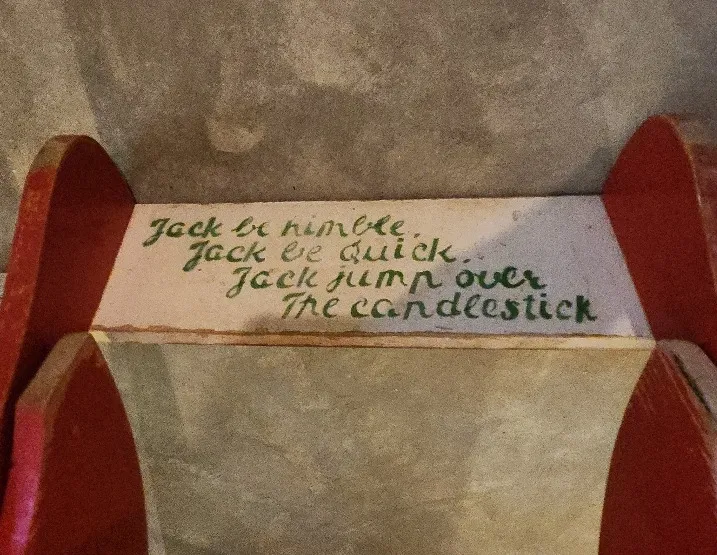 Jack be nimble.
Jack be Quick.
Jack jump over
The candlestick